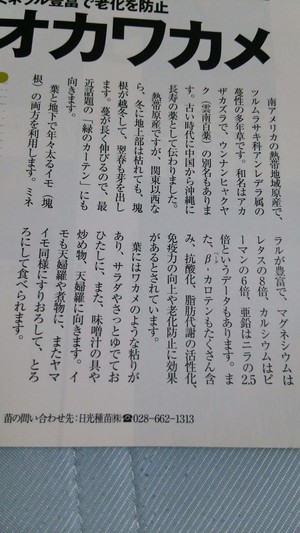 ミネラル豊富で老化を防止
オカワカメ
南アメリカの熱帯地域原産で、
ツルムラサキ科アンレデラ属の
蔓性の多年草です。和名はアカ
ザカズラで、ウンナンヒャクヤ
ク（雲南百薬）の別名もありま
す。古い時代に中国から沖縄に
長寿の薬として伝わりました。
熱帯原産ですが、関東以西な
ら、冬に地上部は枯れても、塊
根が越冬して、翌春も芽を出し
ます。蔓が長く伸びるので、最
近話題の「緑のカーテン」にも
向きます。
葉と地下で年々太るイモ（塊
根）の両方を利用します。ミネ
ラルが豊富で、マグネシウムは
レタスの8倍、カルシウムはピ
ーマンの6倍、亜鉛はニラの2.5
倍というデータもあります。ま
た、β-カロテンもたくさん含
み、抗酸化、脂肪代謝の活性化、
免疫力の向上や老化防止に効果
があるとされています。
葉にはワカメのような粘りが
あり、サラダやさっとゆでてお
ひたしに、また、味噌汁の具や
炒め物、天婦羅に向きます。イ
モも天婦羅や煮物に、またヤマ
イモ同様にすりおろして、とろ
ろにして食べられます。
苗の問い合わせ先：日光種苗㈱☎028-662-1313